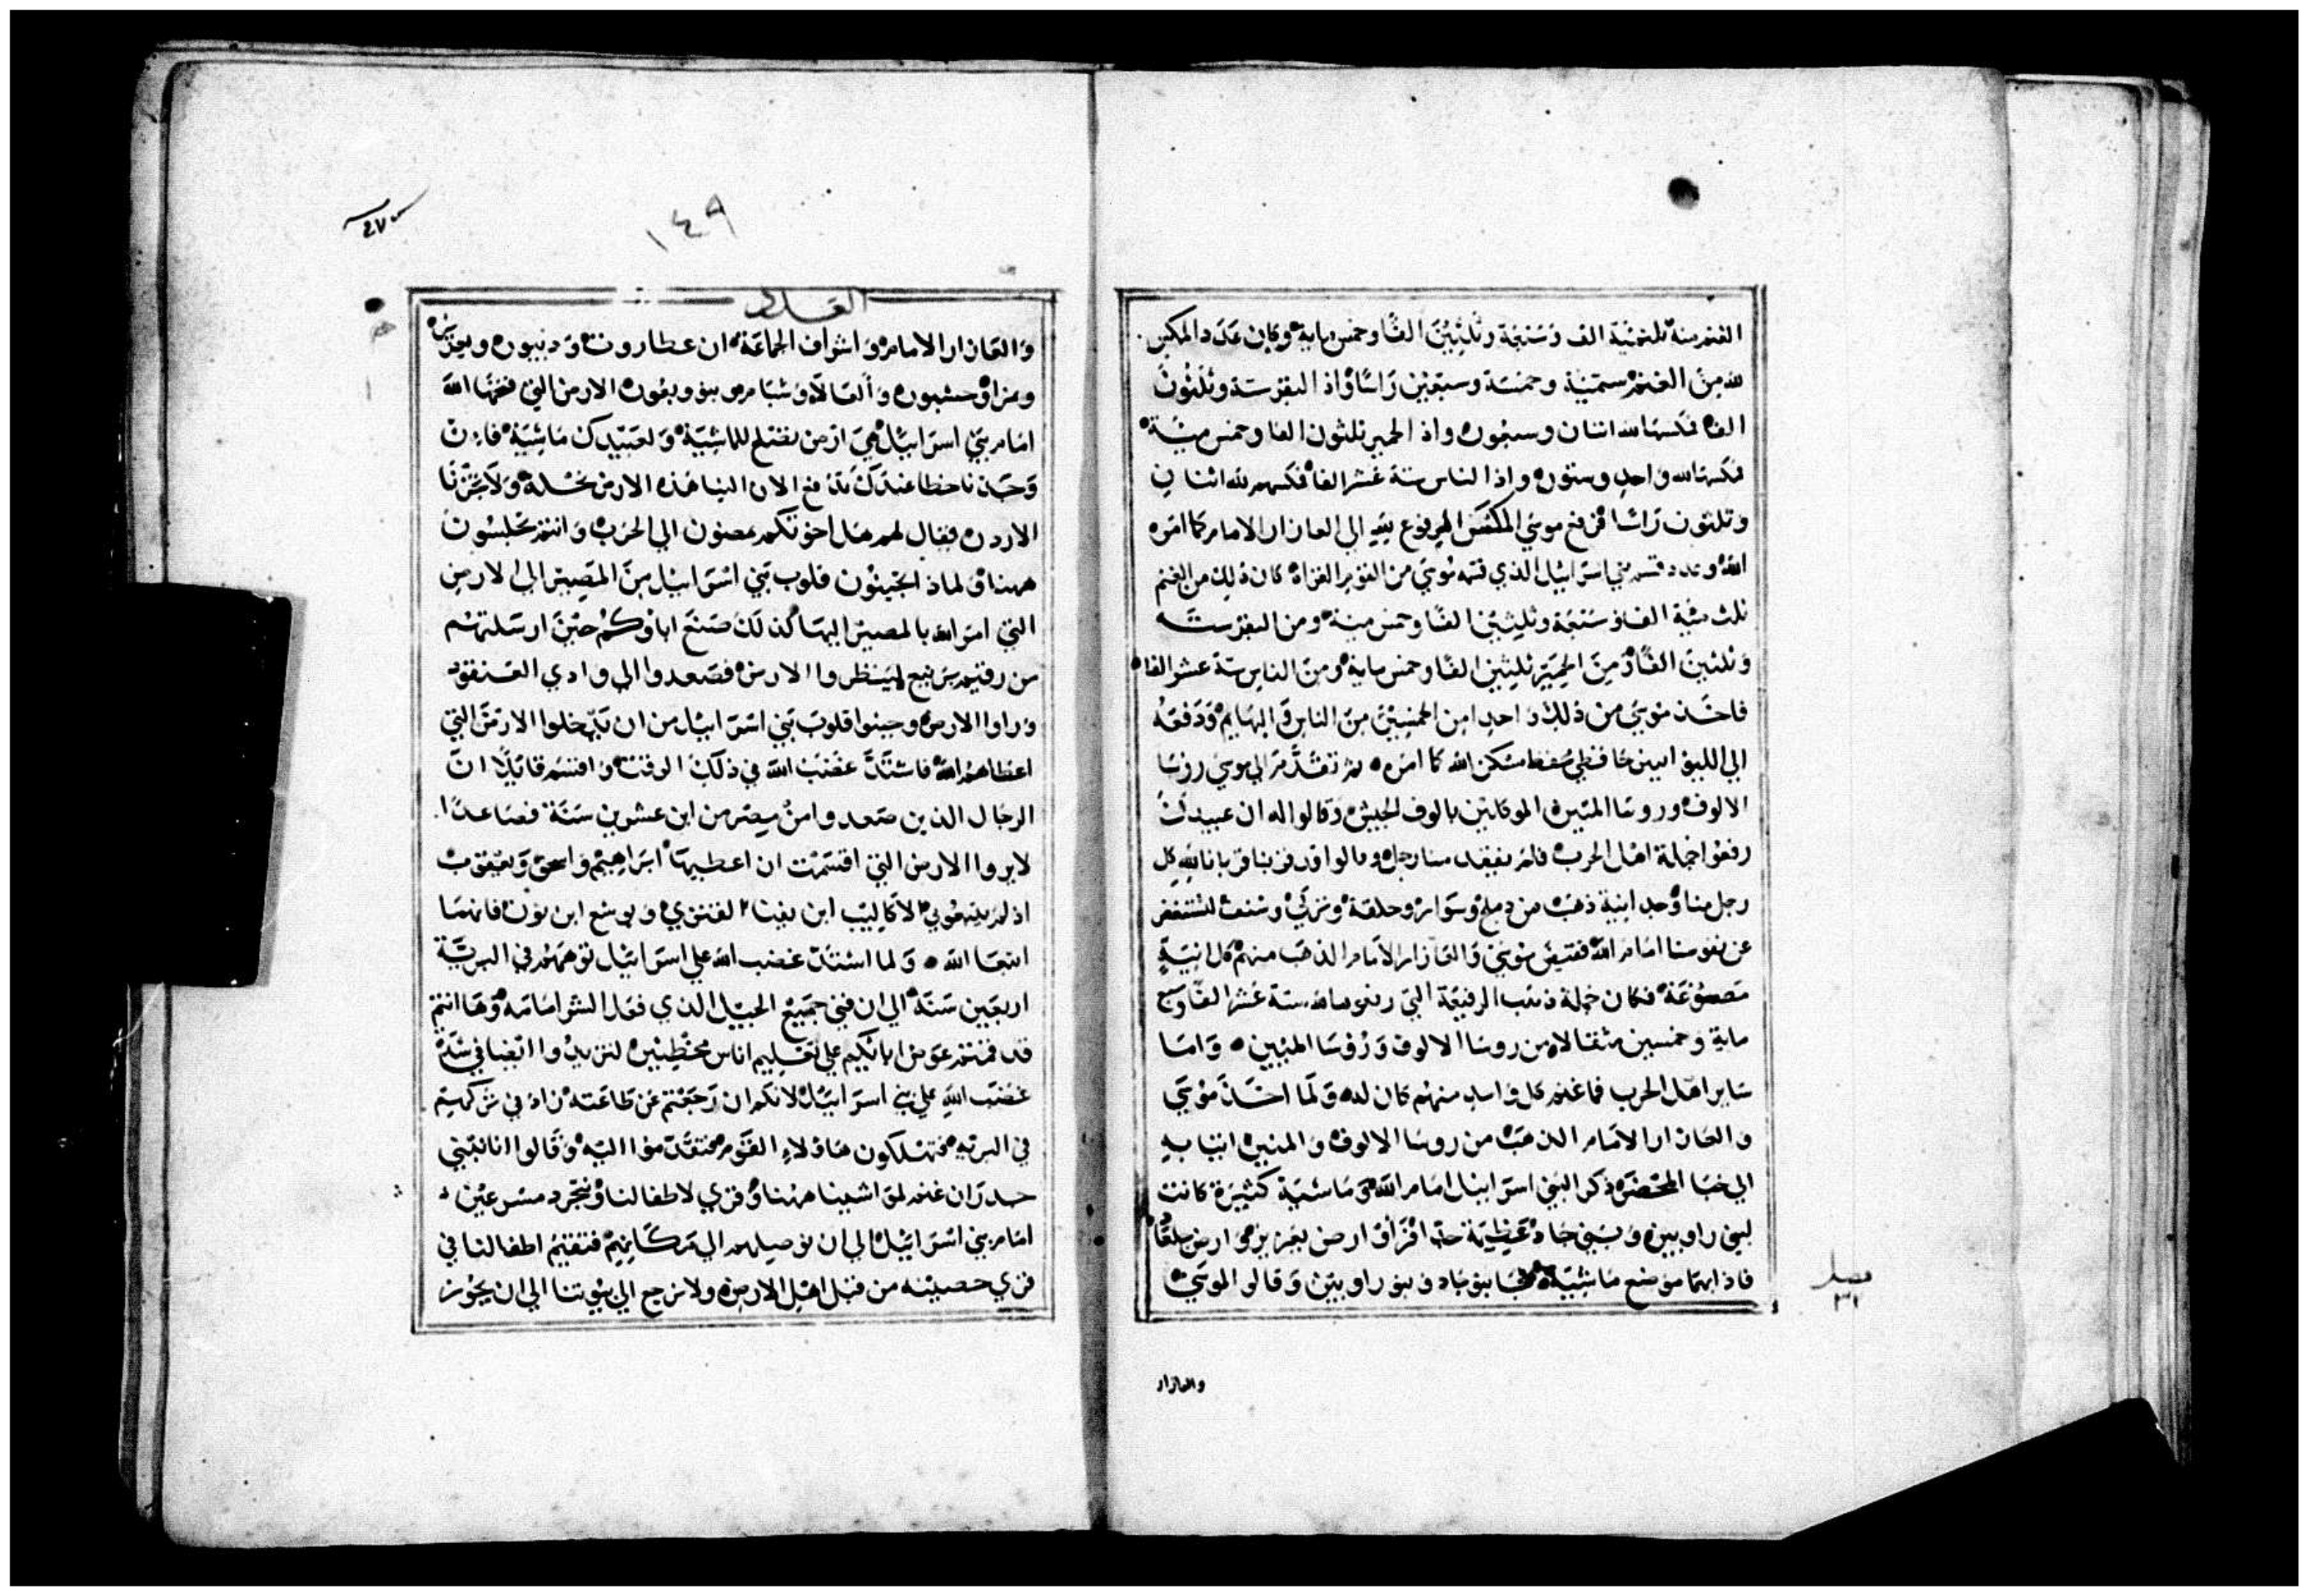 الغنم منه ثلثمئية الف وسبعة وثلثين الفا وخمس ماية وكان عدد المكس
لله من الغنم ستميية وخمسة وسبعين راسا واذ البقر ستة وثلثون
الفا فمكسها لله اثنان وسبعون واذ الحمير ثلثون الفا وخمس مئية
فمكسها لله واحد وستون واذا الناس ستة عشر الفا فمكسهم لله اثنان
وثلثون راسا فدفع موسي المكس المرفوع ييه الي العازار الامام كما امره
الله وعدد قسم بني اسرائيل الذي قسمه موسي من القوم الغزاه كان ذلك من الغنم
ثلث مئية الف وسبعة وثلثين الفا وخمس مئة ومن البقر ستة
وثلثين الفا ومن الحمير ثلثين الفا وخمس ماية ومن الناس ستة عشر الفا
فاخذ موسي من ذلك واحدا من الخمسين من الناس والبهايم ودفعه
الي الليوانيين حافظي حفظ مسكن الله كما امره ثم تقدم الي موسي روسا
الالوف وروسا المئين الموكلين بالوف الجيش وقالوا له ان عبيدك
رفعوا جملة اهل الحرب فلم يفقد منا رجل وقالوا قد قربنا قربانا لله كل
رجل منا وجد انية ذهب من دملج وسوار وحلقة وشنف لنستغفر
عن نفوسنا امام الله فقبض موسي والعازار الامام الذهب منهم كل انية
مصوغة فكان جملة ذهب الرفيعة التي رفعوها لله ستة عشر الفا وسبع
ماية وخمسين مثقالا من روسا الالوف وروسا المئين واما
ساير اهل الحرب فما غنم كل واحد منهم كان له ولما اخذ موسي
والعازار الامام الذهب من روسا الالوف والمئين اتيا به
الي خبا المحضر ذكر البني اسرائيل امام الله وماشية كثيرة كانت
لبني راوبين وبني جاد عظيمة جدا فراوا ارض يعزير وارض جلعاد
فاذا بهما موضع ماشية فجا بنو جاد وبنو راوبين وقالوا لموسي
فصل
٣٢
والعازار
١٤٩
العدد
والعازار الامام واشراف الجماعة ان عطاروت وديبون ويعزير
ونمرا وحشبون والعالاه وشبام ونبو وبعون الارض التي فتحها الله
امام بني اسرائيل هي ارض تصلح للماشية ولعبيدك ماشية فان
وجدنا حظا عندك تدفع الان الينا هذه الارض نحلة ولا تجزنا
الاردن فقال لهم هل اخوتكم يمضون الي الحرب وانتم تجلسون
ههنا ولماذا تجبنون قلوب بني اسرائيل من المصير الي الارض
التي امر الله بالمصير اليها كذلك صنع اباوكم حين ارسلتهم
من رقيم برنيع لينظروا الارض فصعدوا الي وادي العنقود
وراوا الارض وجبنوا قلوب بني اسرائيل من ان يدخلوا الارض التي
اعطاهم الله فاشتد غضب الله في ذلك الوقت واقسم قائلا ان
الرجال الذين صعدوا من مصر من ابن عشرين سنة فصاعدا
لا يروا الارض التي اقسمت ان اعطيها ابراهيم واسحق ويعقوب
اذ لم الا كاليب ابن يفنا القنزي ويوشع ابن نون فانهما
اتبعا الله ولما اشتد غضب الله علي اسرائيل توههم في البرية
اربعين سنة الي ان فني جميع الجيل الذي فعل الشر امامه وها انتم
قد قمتم عوض ابايكم علي تعليم اناس مخطيين لتزيدوا ايضا في شدة
غضب الله علي بني اسرائيل لانكم ان رجعتم عن طاعته زاد في تركهم
في البرية فتهلكون هاولاء القوم فتقدموا اليه وقالوا انا نبني
حدران غنم لمواشينا ههنا وقري لاطفالنا ونتجرد مسرعين
امام بني اسرائيل الي ان نوصيلهم الي مكانهم فتقيم اطفالنا في
قري حصينه من قبل اهل الارض ولا نرجع الي بيوتنا الي ان يحوز